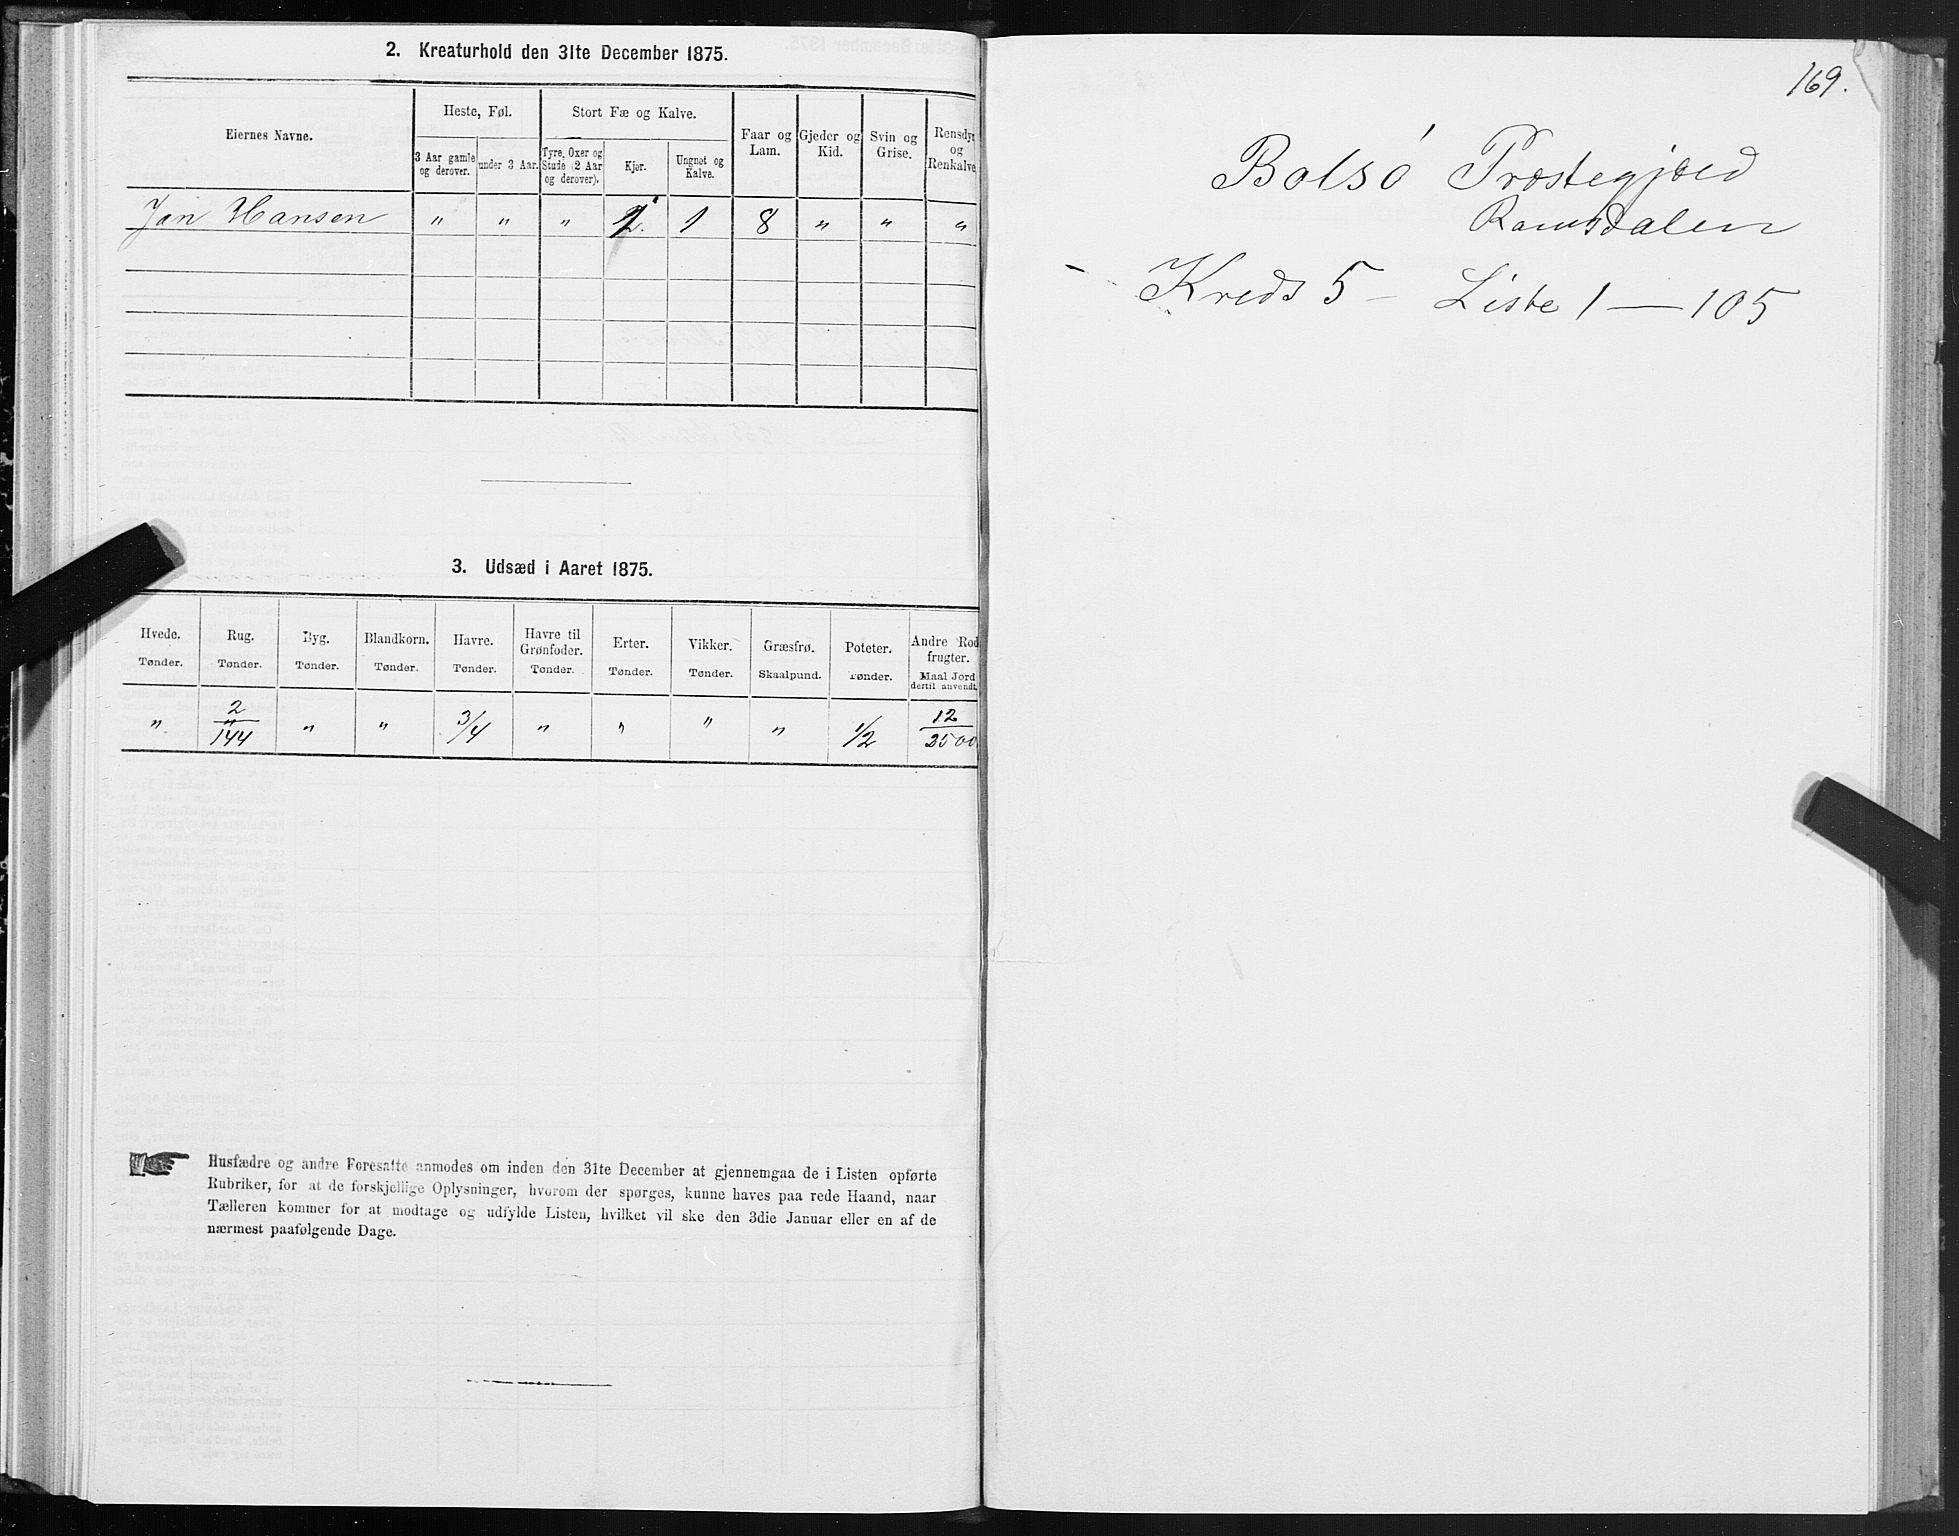 2. Kreaturhold den 31te December 1875.
Eiernes Navne.
Heste, Føl.
Stort Fæ og Kalve.
3 Aar gamle og derover.
under 3 Aar.
Tyre, Oxer og Stude (2 Aar og derover).
Kjør.
Ungnøt og Kalve.
Faar og Lam.
Gjeder og Kid.
Svin og Grise.
Rensdyr og Renkalve
Jan Hansen " " " 2. 1 8 " " "
3. Udsæd i Aaret 1875.
Hvede. Rug. Byg. Blandkorn. Havre. Havre til Grønfoder. Erter. Vikker. Græsfrø. Poteter. Andre Rodfrugter.
Tønder. Tønder. Tønder. Tønder. Tønder. Tønder. Tønder. Tønder. Skaalpund. Tønder. Maal Jord dertil anvendt.
" 2/144 " " 3/4 " " " " 1/2 12/2500
Husfædre og andre Foresatte anmodes om inden den 31te December at gjennemgaa de i Listen opførte
Rubriker, for at de forskjellige Oplysninger, hvorom der spørges, kunne haves paa rede Haand, naar
Tælleren kommer for at modtage og udfylde Listen, hvilket vil ske den 3die Januar eller en af de
nærmest paafølgende Dage.
169.
Bolsö Præstegjæld
Romsdalen
Kreds 5 - Liste 1 — 105